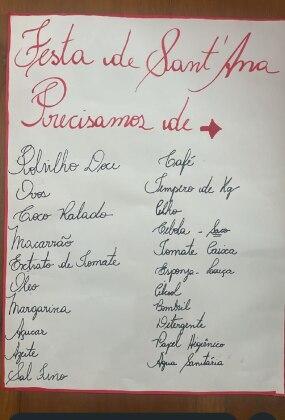 Festa de Sant'Ana
Precisamos de →
Polvilho Doce
Ovos
Coco Ralado
Macarrão
Extrato de Tomate
Óleo
Margarina
Açucar
Azeite
Sal Fino
Café
Tempero de Kg
Alho
Cebola - Saco
Tomate Caixa
Esponja - louça
Alcool
Bombril
Detergente
Papel Higiênico
Água Sanitária